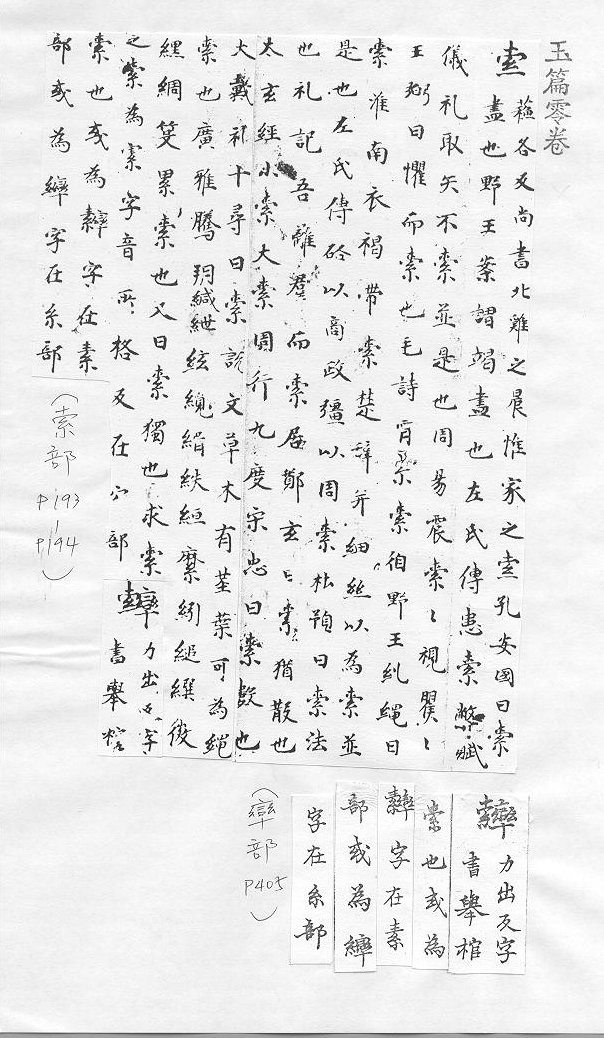 玉篇零卷
索 蘓各反尚書北雞之晨惟家之索孔安國曰索
盡也野王案謂竭盡也左氏傳患索弊賦
儀礼取矢不索並是也周易震索〻視矍〻
王弼曰懼而索也毛詩宵尔索綯野王糺繩曰
索淮南衣褐帶索楚辞并細絲以為索並
是也左氏傳啓以商政彊以周索杜預曰索法
也礼記吾離群而索居鄭玄曰索猶散也
太玄經小索大索周行九度宋忠曰索數也
大戴礼十尋曰索說文草木有莖葉可為繩
索也廣雅縢 緘紲絃繩緝紩絙縻紖縋繏
縲綢筊累索也又曰索獨也求索
之索為索字音所格反在穴部
索也或為繂字在素
部或為繂字在糸部
(索部
P193
P194)
力出反字
書舉棺
力出反字
書舉棺
索也或為
字在素
部或為繂
字在糸部
(部
P405)